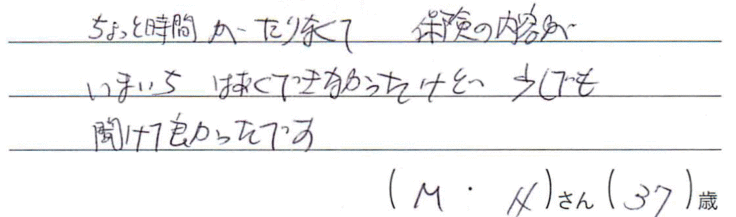 ちょっと時間がたりなくて 保険の内容が
いまいち はあくできなかったけど 少しでも
聞けて良かったです
(M・H)さん(37)歳